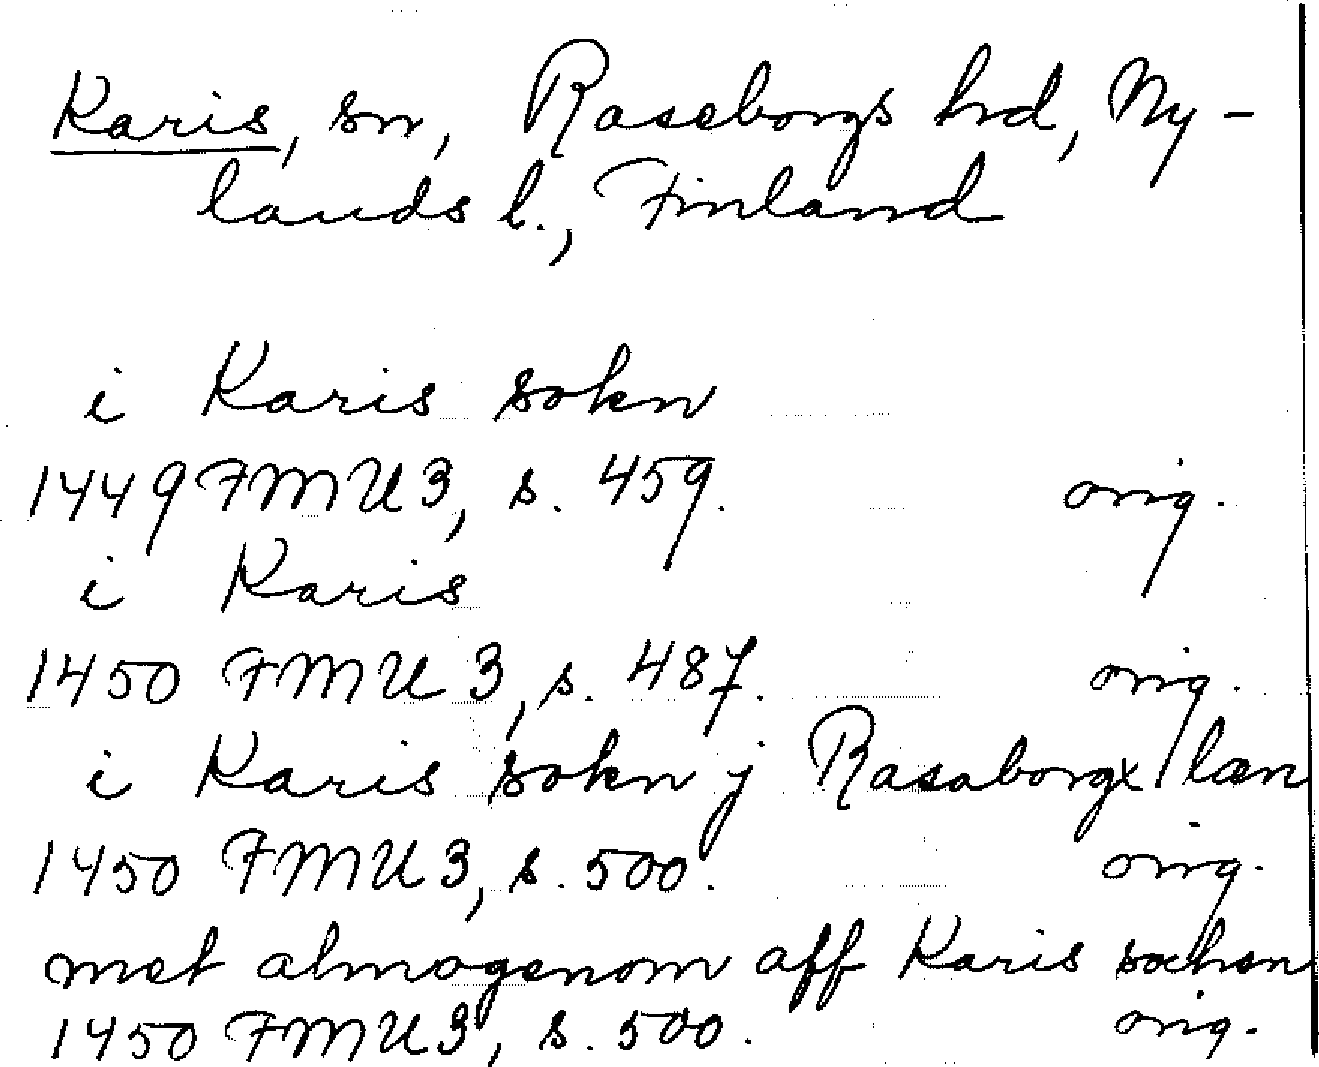 Karis, sn, Raseborgs hrd, Ny-
lands l., Finland
i Karis sokn
1449 FMU 3, s. 459. orig.
i Karis
1450 FMU 3, s. 487. orig.
i Karis sokn j Rasaborgx læn
1450 FMU 3, s. 500. orig.
met almogenom aff Karis sochen
1450 FMU 3, s. 500. orig.